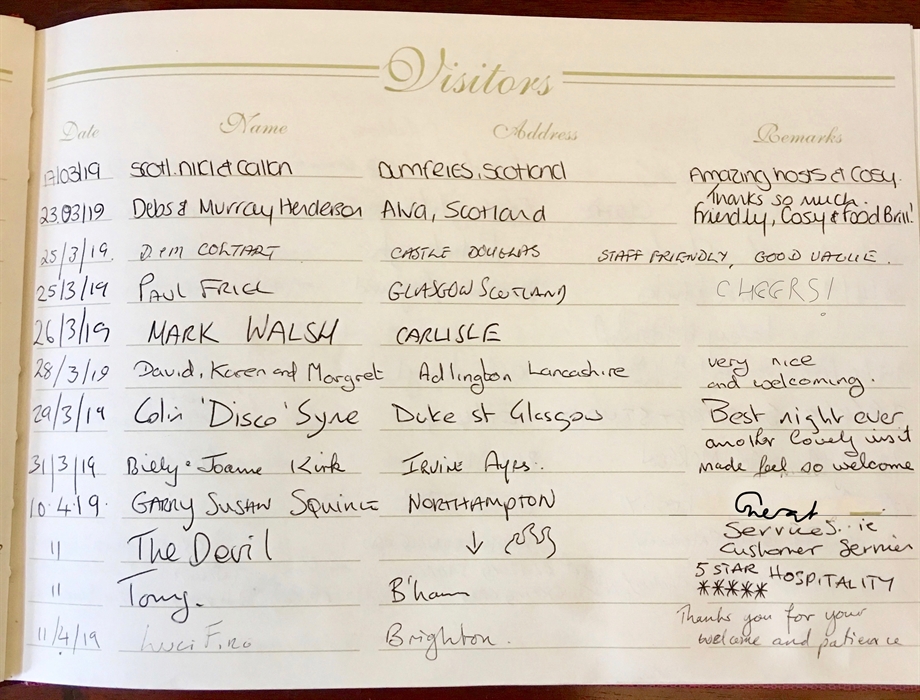 Visitors
Date Name Address Remarks
17/03/19 Scott, nicki & callan Dumfries, Scotland Amazing hosts & cosy.
Thanks so much.
23.03/19 Debs & Murray Henderson Alva, Scotland friendly, Cosy & Food Brill!
25/3/19. D & M COLTART CASTLE DOUGLAS STAFF FRIENDLY, GOOD VALUE.
25/3/19 PAUL GLASGOW SCOTLAND CHEERS!
26/3/19 MARK WALSH CARLISLE
28/3/19 David, Karen and Margret Adlington Lancashire very nice
and welcoming.
29/3/19 Colin 'Disco' Syne Duke st Glasgow Best night ever
another lovely visit
31/3/19 Joanne Kirk IRVINE AYRS. made feel so welcome
10.4.19. GARRY SUSAN SQUIRE NORTHAMPTON Great
Services.. ie
11 The Devil ↓ Customer Service
5 STAR HOSPITALITY
11 Tony. B'ham *****
Thanks you for your
11/4/19 Brighton. welcome and patience